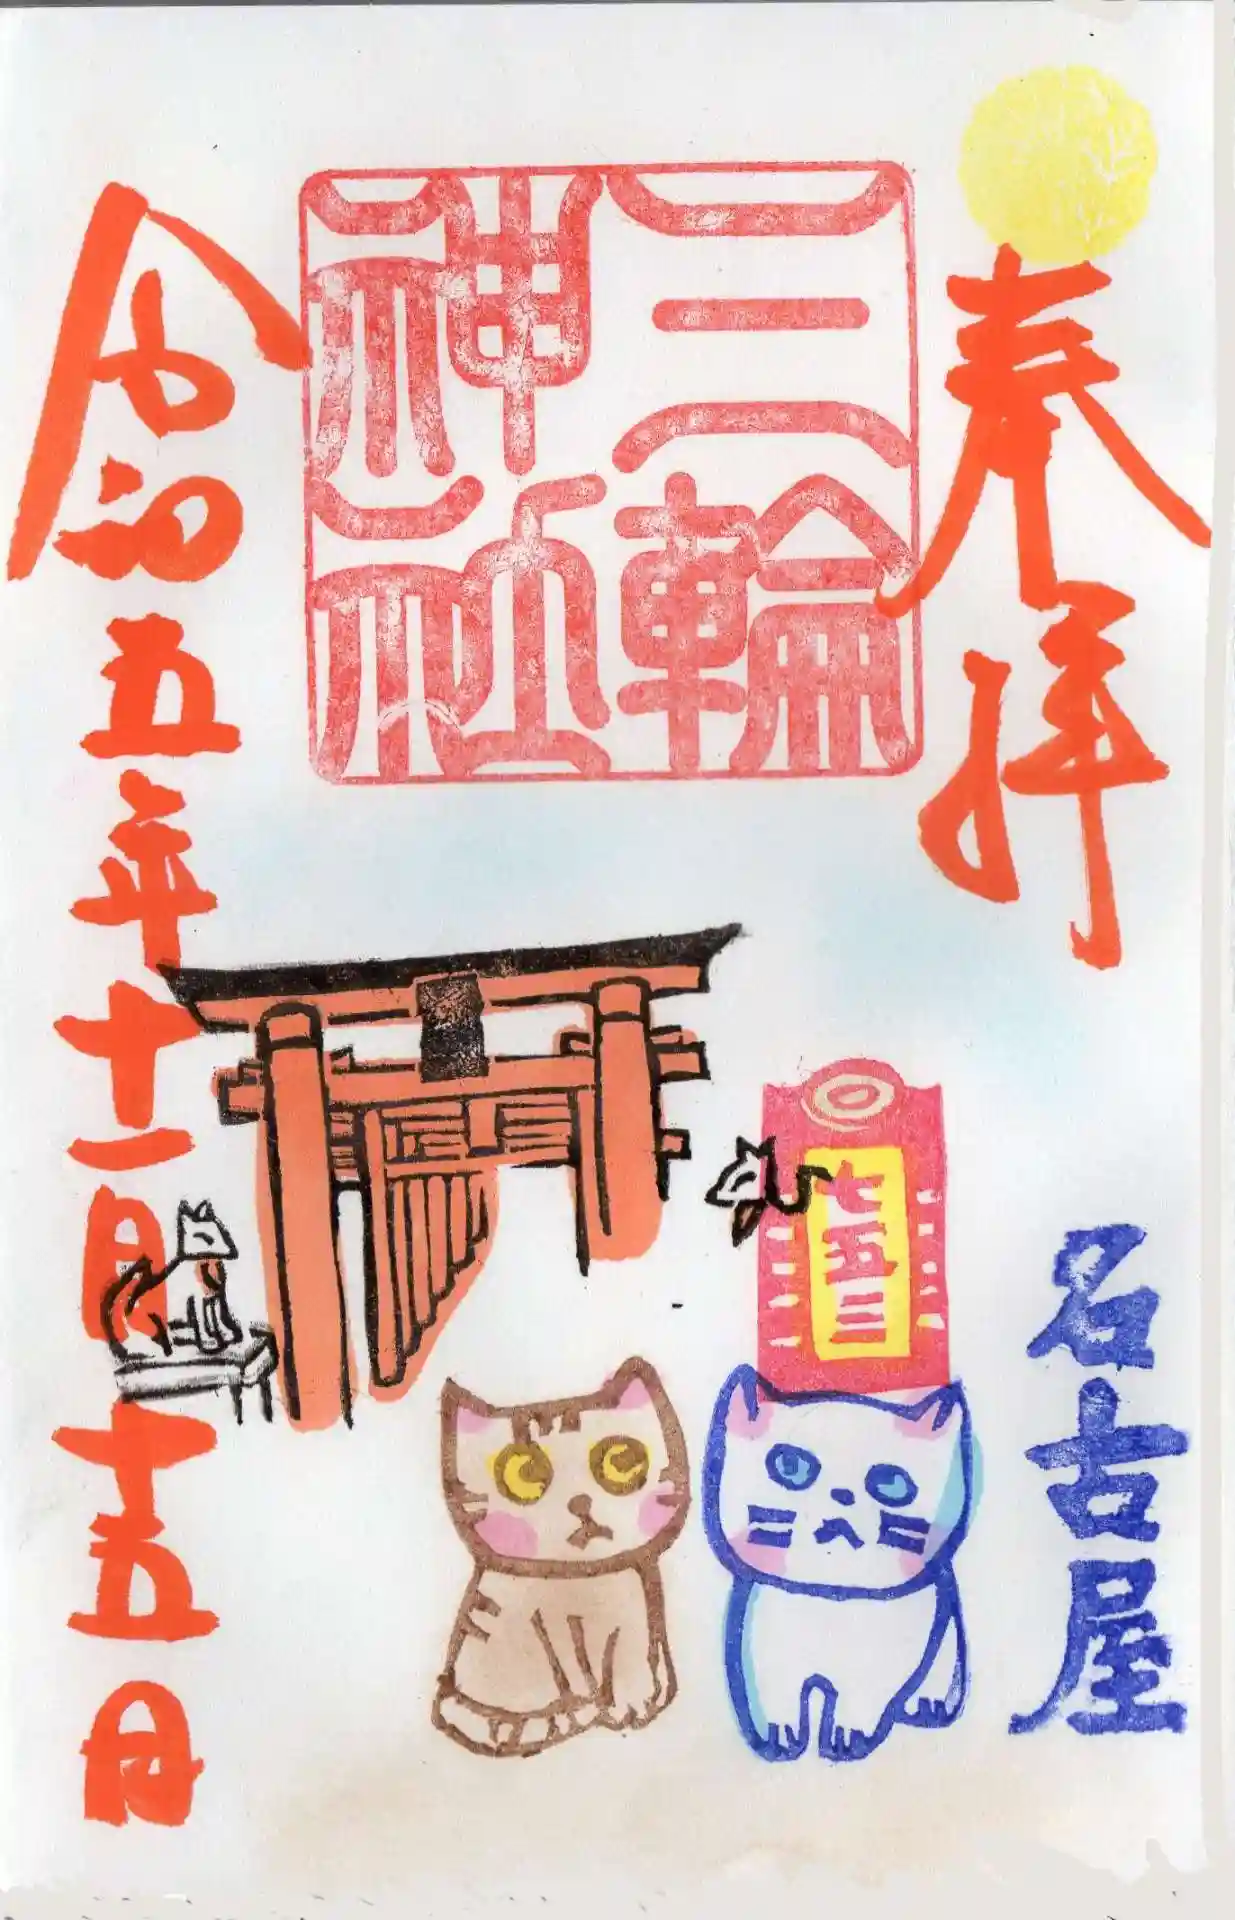 奉拝
名古屋
三輪
神社
七五三
令和五年十一月十五日